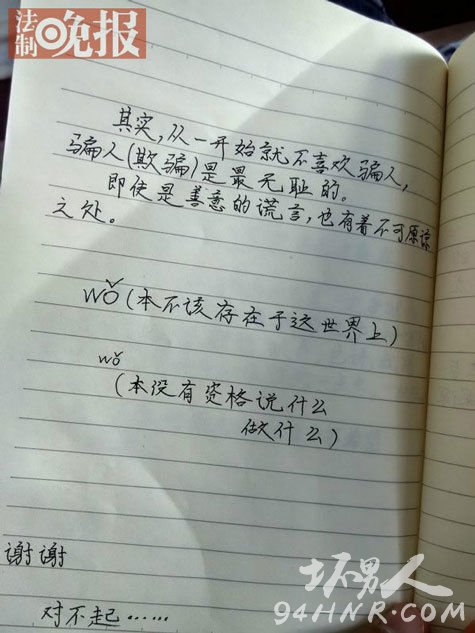 法制晚报
其实,从一开始就不喜欢骗人,
骗人(欺骗)是最无耻的。
即使是善意的谎言,也有着不可原谅
之处。
wǒ(本不该存在于这世界上)
wǒ
(本没有资格说什么
做什么)
谢谢
对不起……
坏男人
94HNR.COM